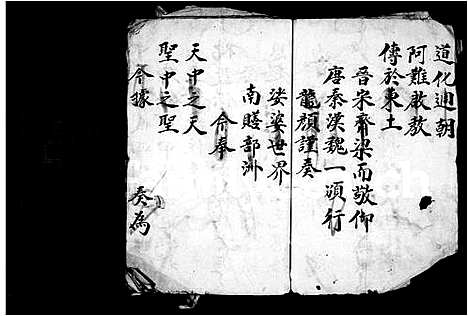 道化通朝
阿難啟教
傳於東土
晉宋齊梁而敬仰
唐秦漢魏一頒行
龍顏謹奏
娑婆世界
南贍部洲
今奉
天中之天
聖中之聖
今據 奏為